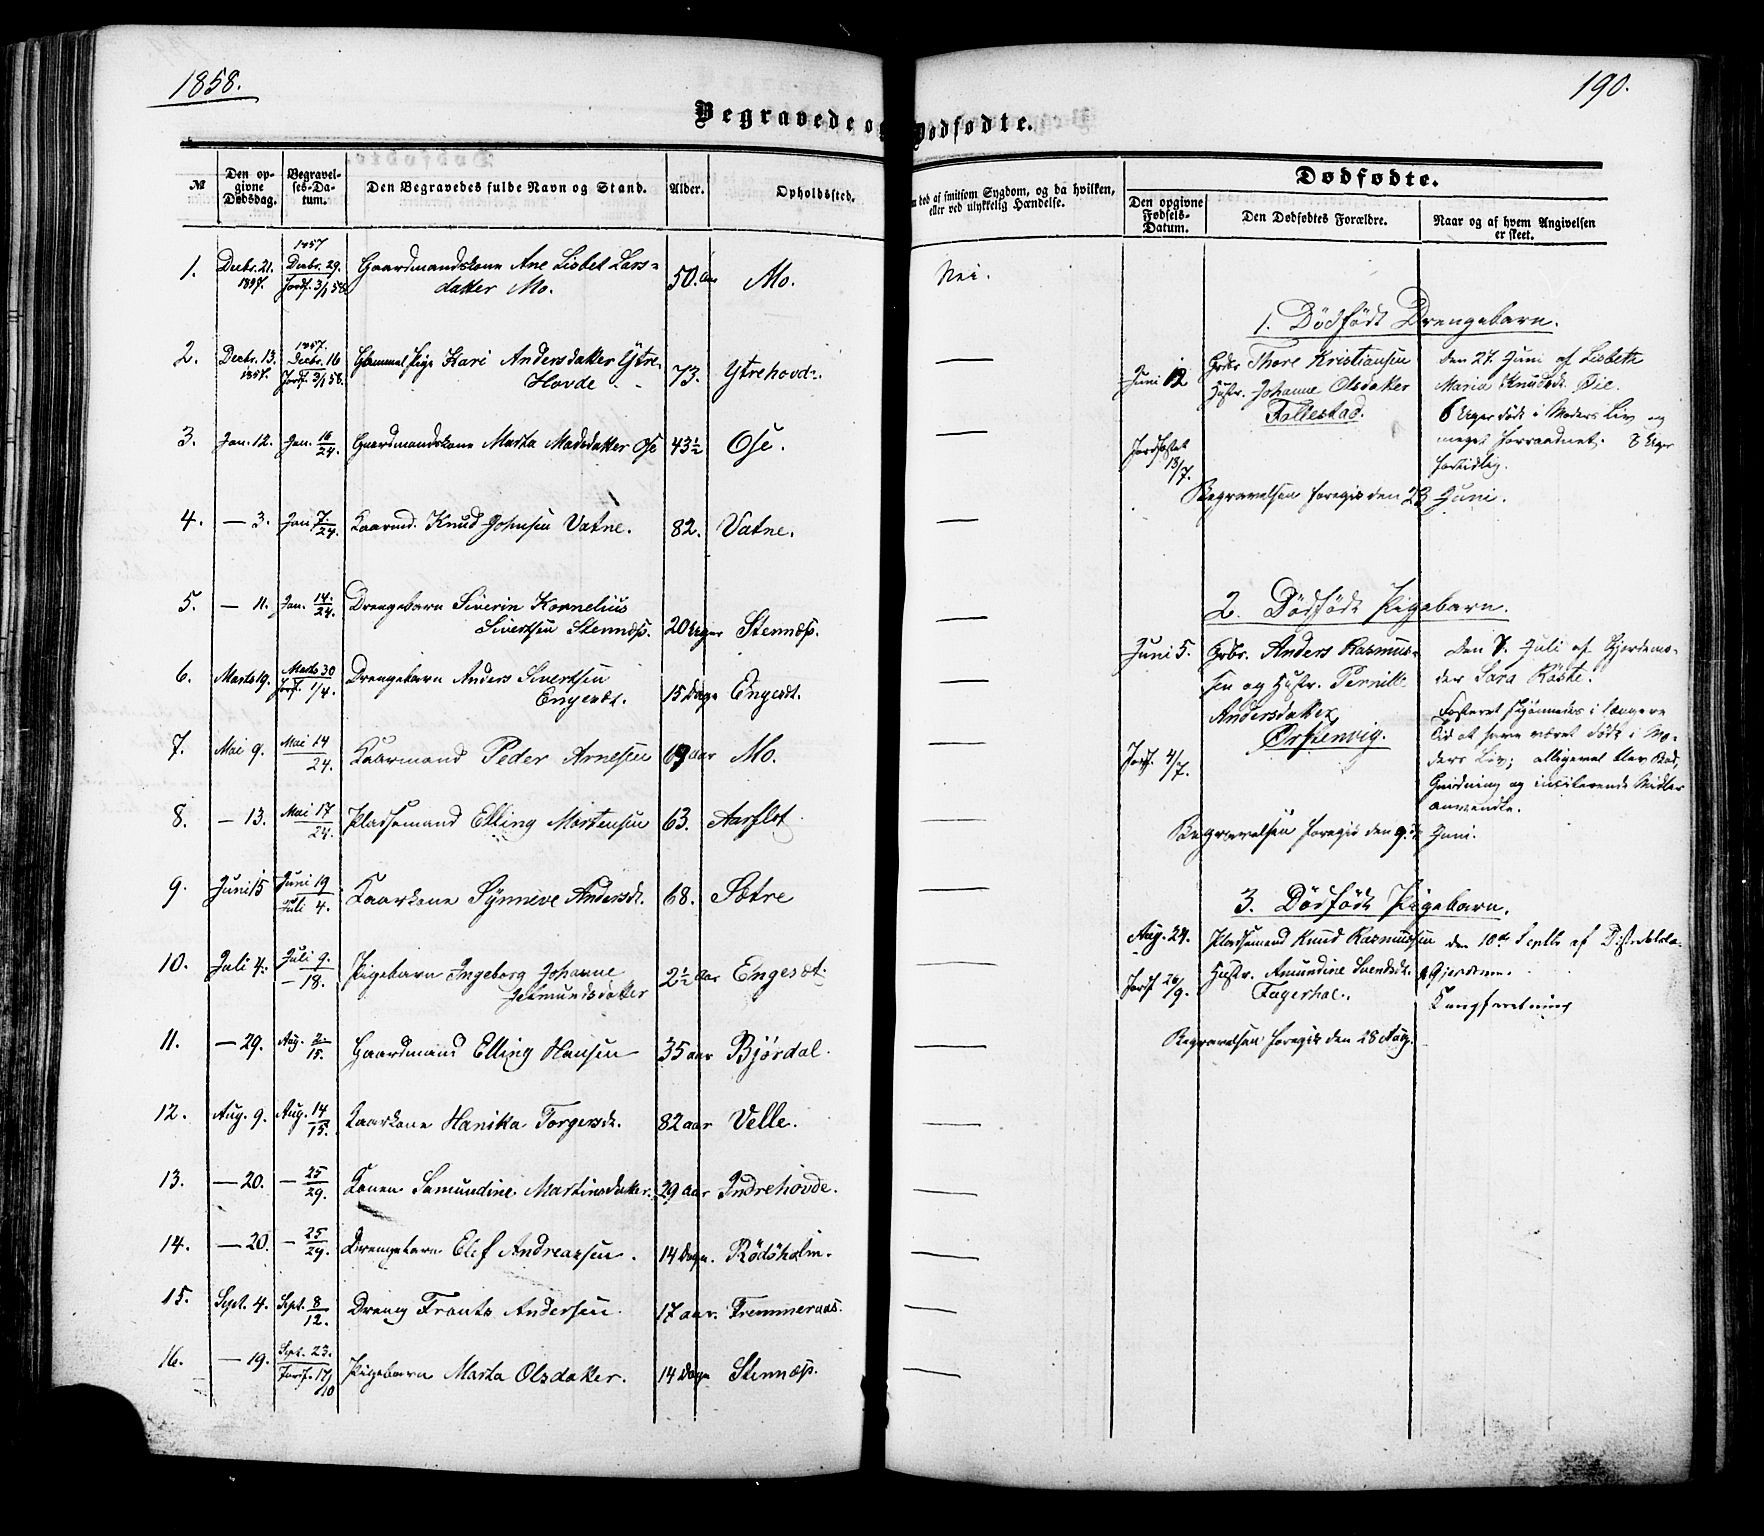 1858.
190.
Begravede og Dødfødte.
№
Den opgivne Dødsdag.
Begravelses-Datum.
Den Begravedes fulde Navn og Stand.
Alder.
Opholdssted.
død af smitsom Sygdom, og da hvilken,
eller ved ulykkelig Hændelse.
Dødfødte.
Den opgivne Fødsels-Datum.
Den Dødfødtes Forældre.
Naar og af hvem Angivelsen er skeet.
1. Decbr. 21. 1857. 1857 Decbr. 29. Jordf. 3/1 58. Gaardmandskone Ane Lisbet Lars-
datter Mo. 50. Aar Mo. Nei.
2. Decbr. 13. 1857. 1857. Decbr. 16 Jordf. 3/1 58. Gammel Pige Kari Andersdatter Ytre-
Hovde 73. Ytrehovde. —
3. Jan. 12. Jan. 16/24. Gaardmandskone Marta Madsdatter Ose 43½ Ose. —
4. — 3. Jan 7/24. Kaarmd. Knud Johnsen Vatne. 82. Vatne. —
5. — 11. Jan. 14./24. Drengebarn Siverin Kornelius
Sivertsen Stennæs. 20 Uger Stennæs. —
6. Marts 19. Marts 30 Jordf. 1/4. Drengebarn Anders Sivertsen
Engesdt. 15 Dage Engesdt. —
7. Mai 9. Mai 14/24. Kaarmand Peder Arnesen 69 Aar Mo. —
8. — 13. Mai 17/24. Pladsemand Elling Mortensen 63. Aarflot —
9. Juni 15 Juni 19 Juli 4. Kaarkone Synneve Andersdt. 68. Sætre —
10. Juli 4. Juli 9. — 18. Pigebarn Ingeborg Johanne
2½ Aar Engesæt. —
11. — 29. Aug. 2/15. Gaardmand Elling Hansen 35 aar Bjørdal. —
12. Aug. 9. Aug. 14/15. Kaarkone Hanika Torgersdt. 82 aar Velle. —
13. — 20. — 25/29. Konen Samundine Martinsdatter. 29 Aar Indrehovde. —
14. — 20. — 25/29. Drengebarn Elef Andreassen. 14 Dage. Rödöholm. —
15. Sept. 4. Sept. 8/12. Dreng Frants Andersen. 17 aar. Tremmernæs. —
16. — 19. Sept. 23. Jordf. 17/10 Pigebarn Marta Olsdatter. 14 Dage Stennæs. —
1. Dödfödt Drengebarn.
Juni 12
Grbr. Thore Kristiansen
Hustr. Johanne Olsdatter
Follestad.
den 27. Juni af Lisbeth
Maria Knudsdt. Öie.
6 Uger död i Moders Liv og
meget forraadnet; 8 Uger
fortidlig.
Jordfæstet 18/7.
Begravelsen foregik den 23 Juni.
2. Dödfödt Pigebarn.
Juni 5.
Grbr. Anders Rasmus-
sen og Hustr. Pernille
Andersdatter
Ørstenvig.
Den Juli af Gjordemo-
der Sara Röste.
Fosteret skjönnedes i længere
Tid at have været dödt i Mo-
ders Liv; alligevel blev Bad,
Gnidning og inciterende Midler
anvendte.
Jordf. 4/7.
Begravelsen foregik den 9. Juni.
3. Dödfödt Pigebarn.
Aug. 24.
Pladsemand Knud Rasmussen
Hustr. Amundine Svendsdt.
Fagerhol.
den 10de Septb. af Distrikts-
Gjordem.
Jordf 26/9.
Begravelsen foregik den 28 Aug.